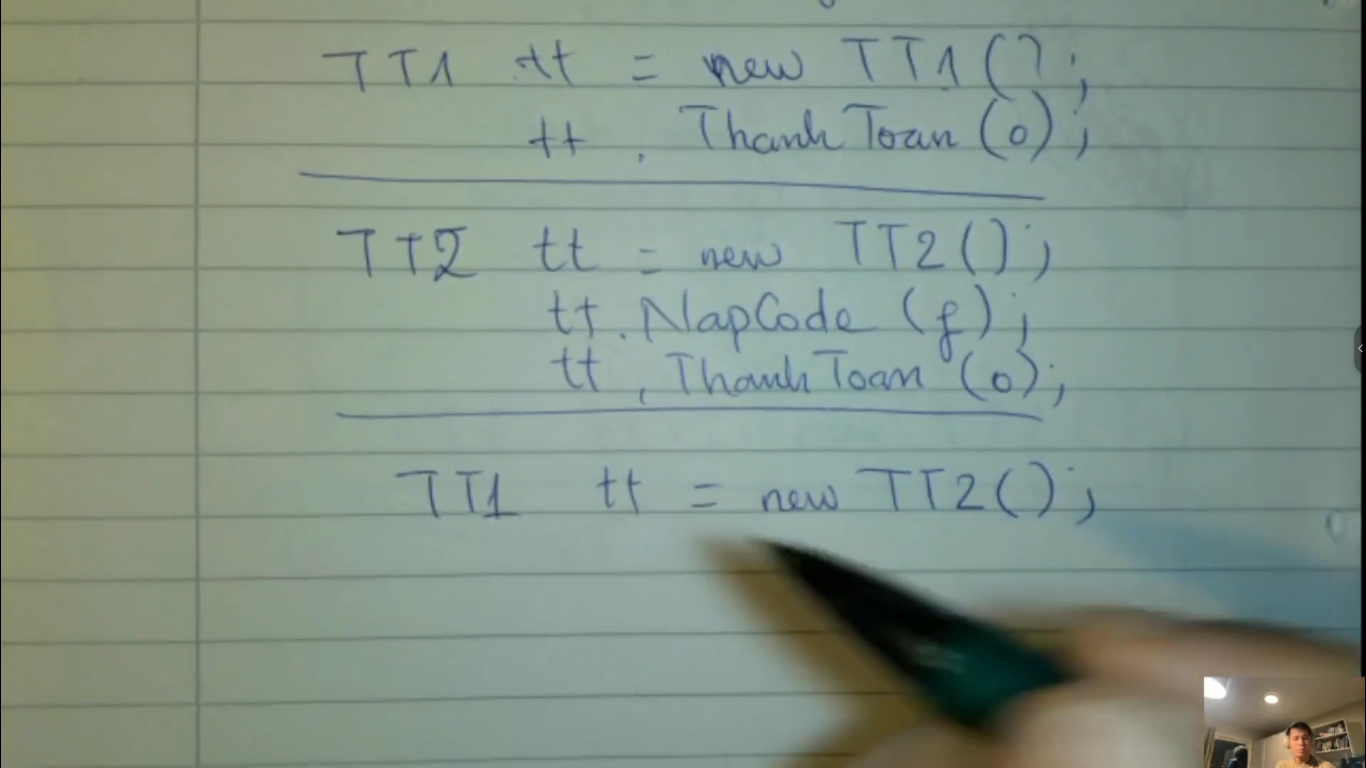 TT1 tt = new TT1();
tt.ThanhToan(o);
TT2 tt = new TT2();
tt.NapCode(f);
tt.ThanhToan(o);
TT1 tt = new TT2();